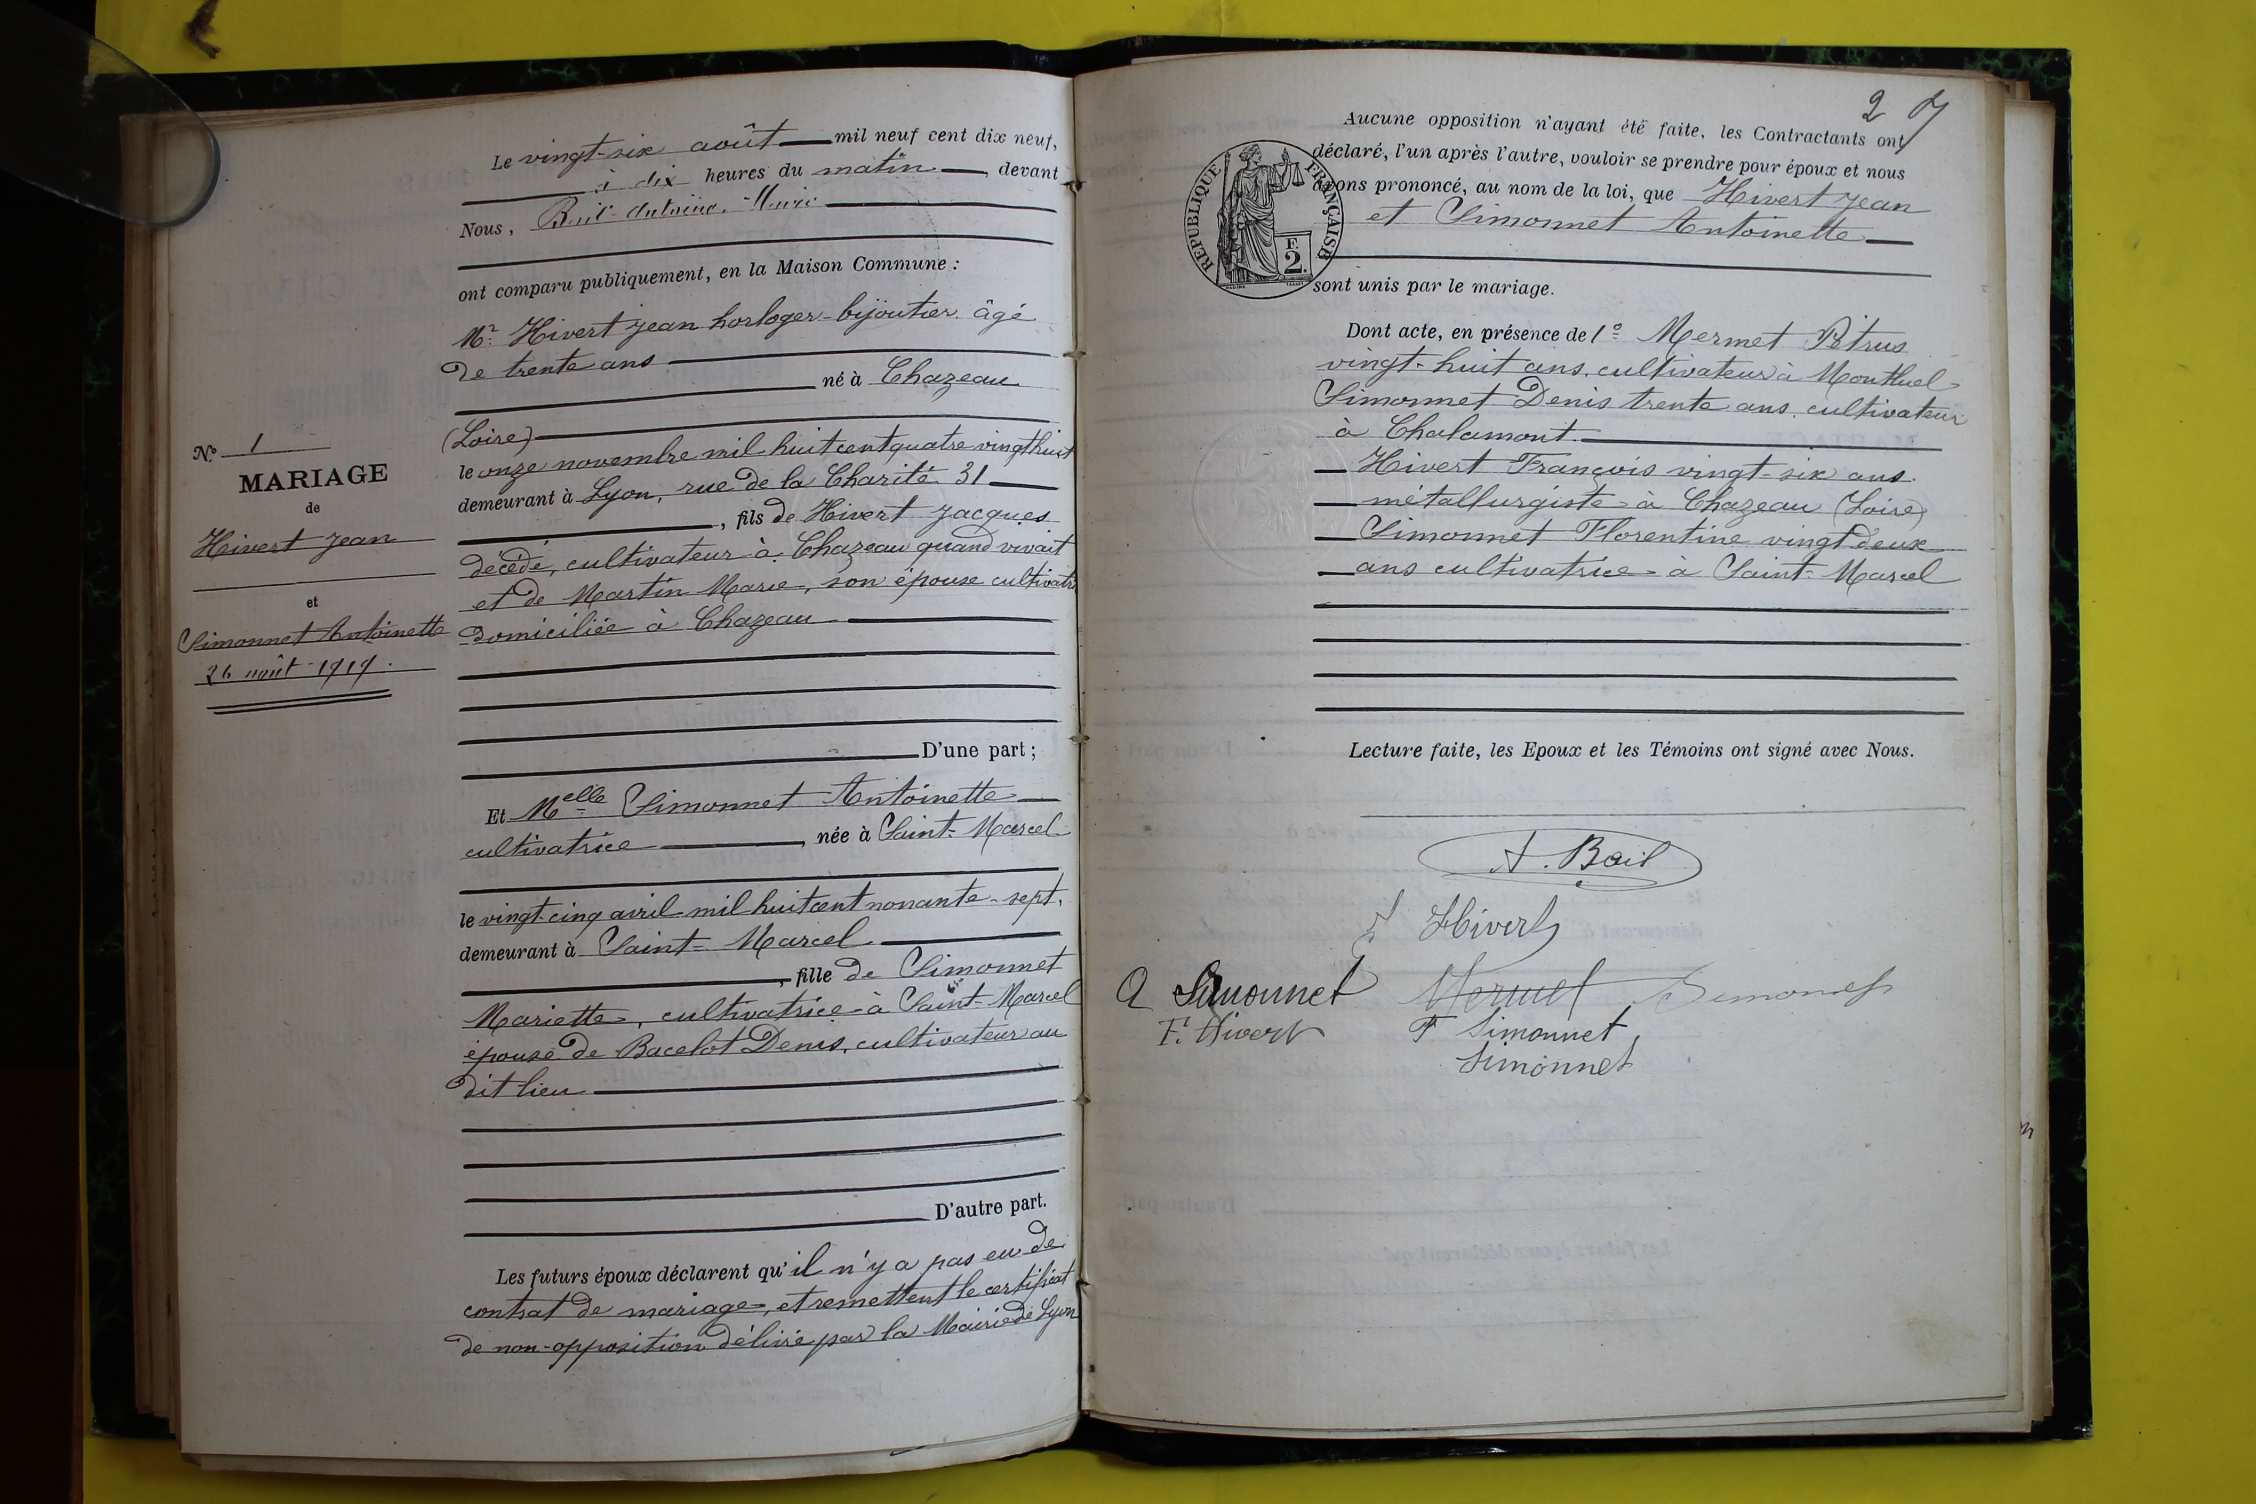 Le vingt-six août mil neuf cent dix neuf,
à dix heures du matin, devant
Nous, Bail Antoine, Maire
ont comparu publiquement, en la Maison Commune :
Mr Hivert Jean horloger-bijoutier âgé
de trente ans
né à Chazeau
(Loire)
le onze novembre mil huit cent quatre vingt huit
demeurant à Lyon, rue de la Charité 31
, fils de Hivert Jacques
décédé, cultivateur à Chazeau quand vivait
et de Martin Marie, son épouse cultivatr
domiciliée à Chazeau
D'une part ;
N° 1
MARIAGE
de
Hivert Jean
et
Simonnet Antoinette
26 août 1919.
Et Melle Simonnet Antoinette
cultivatrice, née à Saint-Marcel
le vingt-cinq avril mil huit cent nonante-sept,
demeurant à Saint-Marcel
, fille de Simonnet
Mariette, cultivatrice à Saint-Marcel
épouse de Bacelot Denis, cultivateur au
dit lieu
D'autre part.
Les futurs époux déclarent qu'il n'y a pas eu de
contrat de mariage, et remettent le certificat
de non-opposition délivré par la Mairie de Lyon
2
Aucune opposition n'ayant été faite, les Contractants ont
déclaré, l'un après l'autre, vouloir se prendre pour époux et nous
avons prononcé, au nom de la loi, que Hivert Jean
et Simonnet Antoinette
REPUBLIQUE FRANÇAISE
F.
2.
sont unis par le mariage.
Dont acte, en présence de 1° Mermet Pétrus
vingt-huit ans, cultivateur à Montluel
Simonnet Denis trente ans, cultivateur
à Chalamont
Hivert François vingt-six ans
métallurgiste à Chazeau (Loire)
Simonnet Florentine vingt deux
ans cultivatrice à Saint-Marcel
Lecture faite, les Epoux et les Témoins ont signé avec Nous.
A. Bail
J Hivert
A Simonnet Mermet Simonnet
F. Hivert F Simonnet
Simonnet